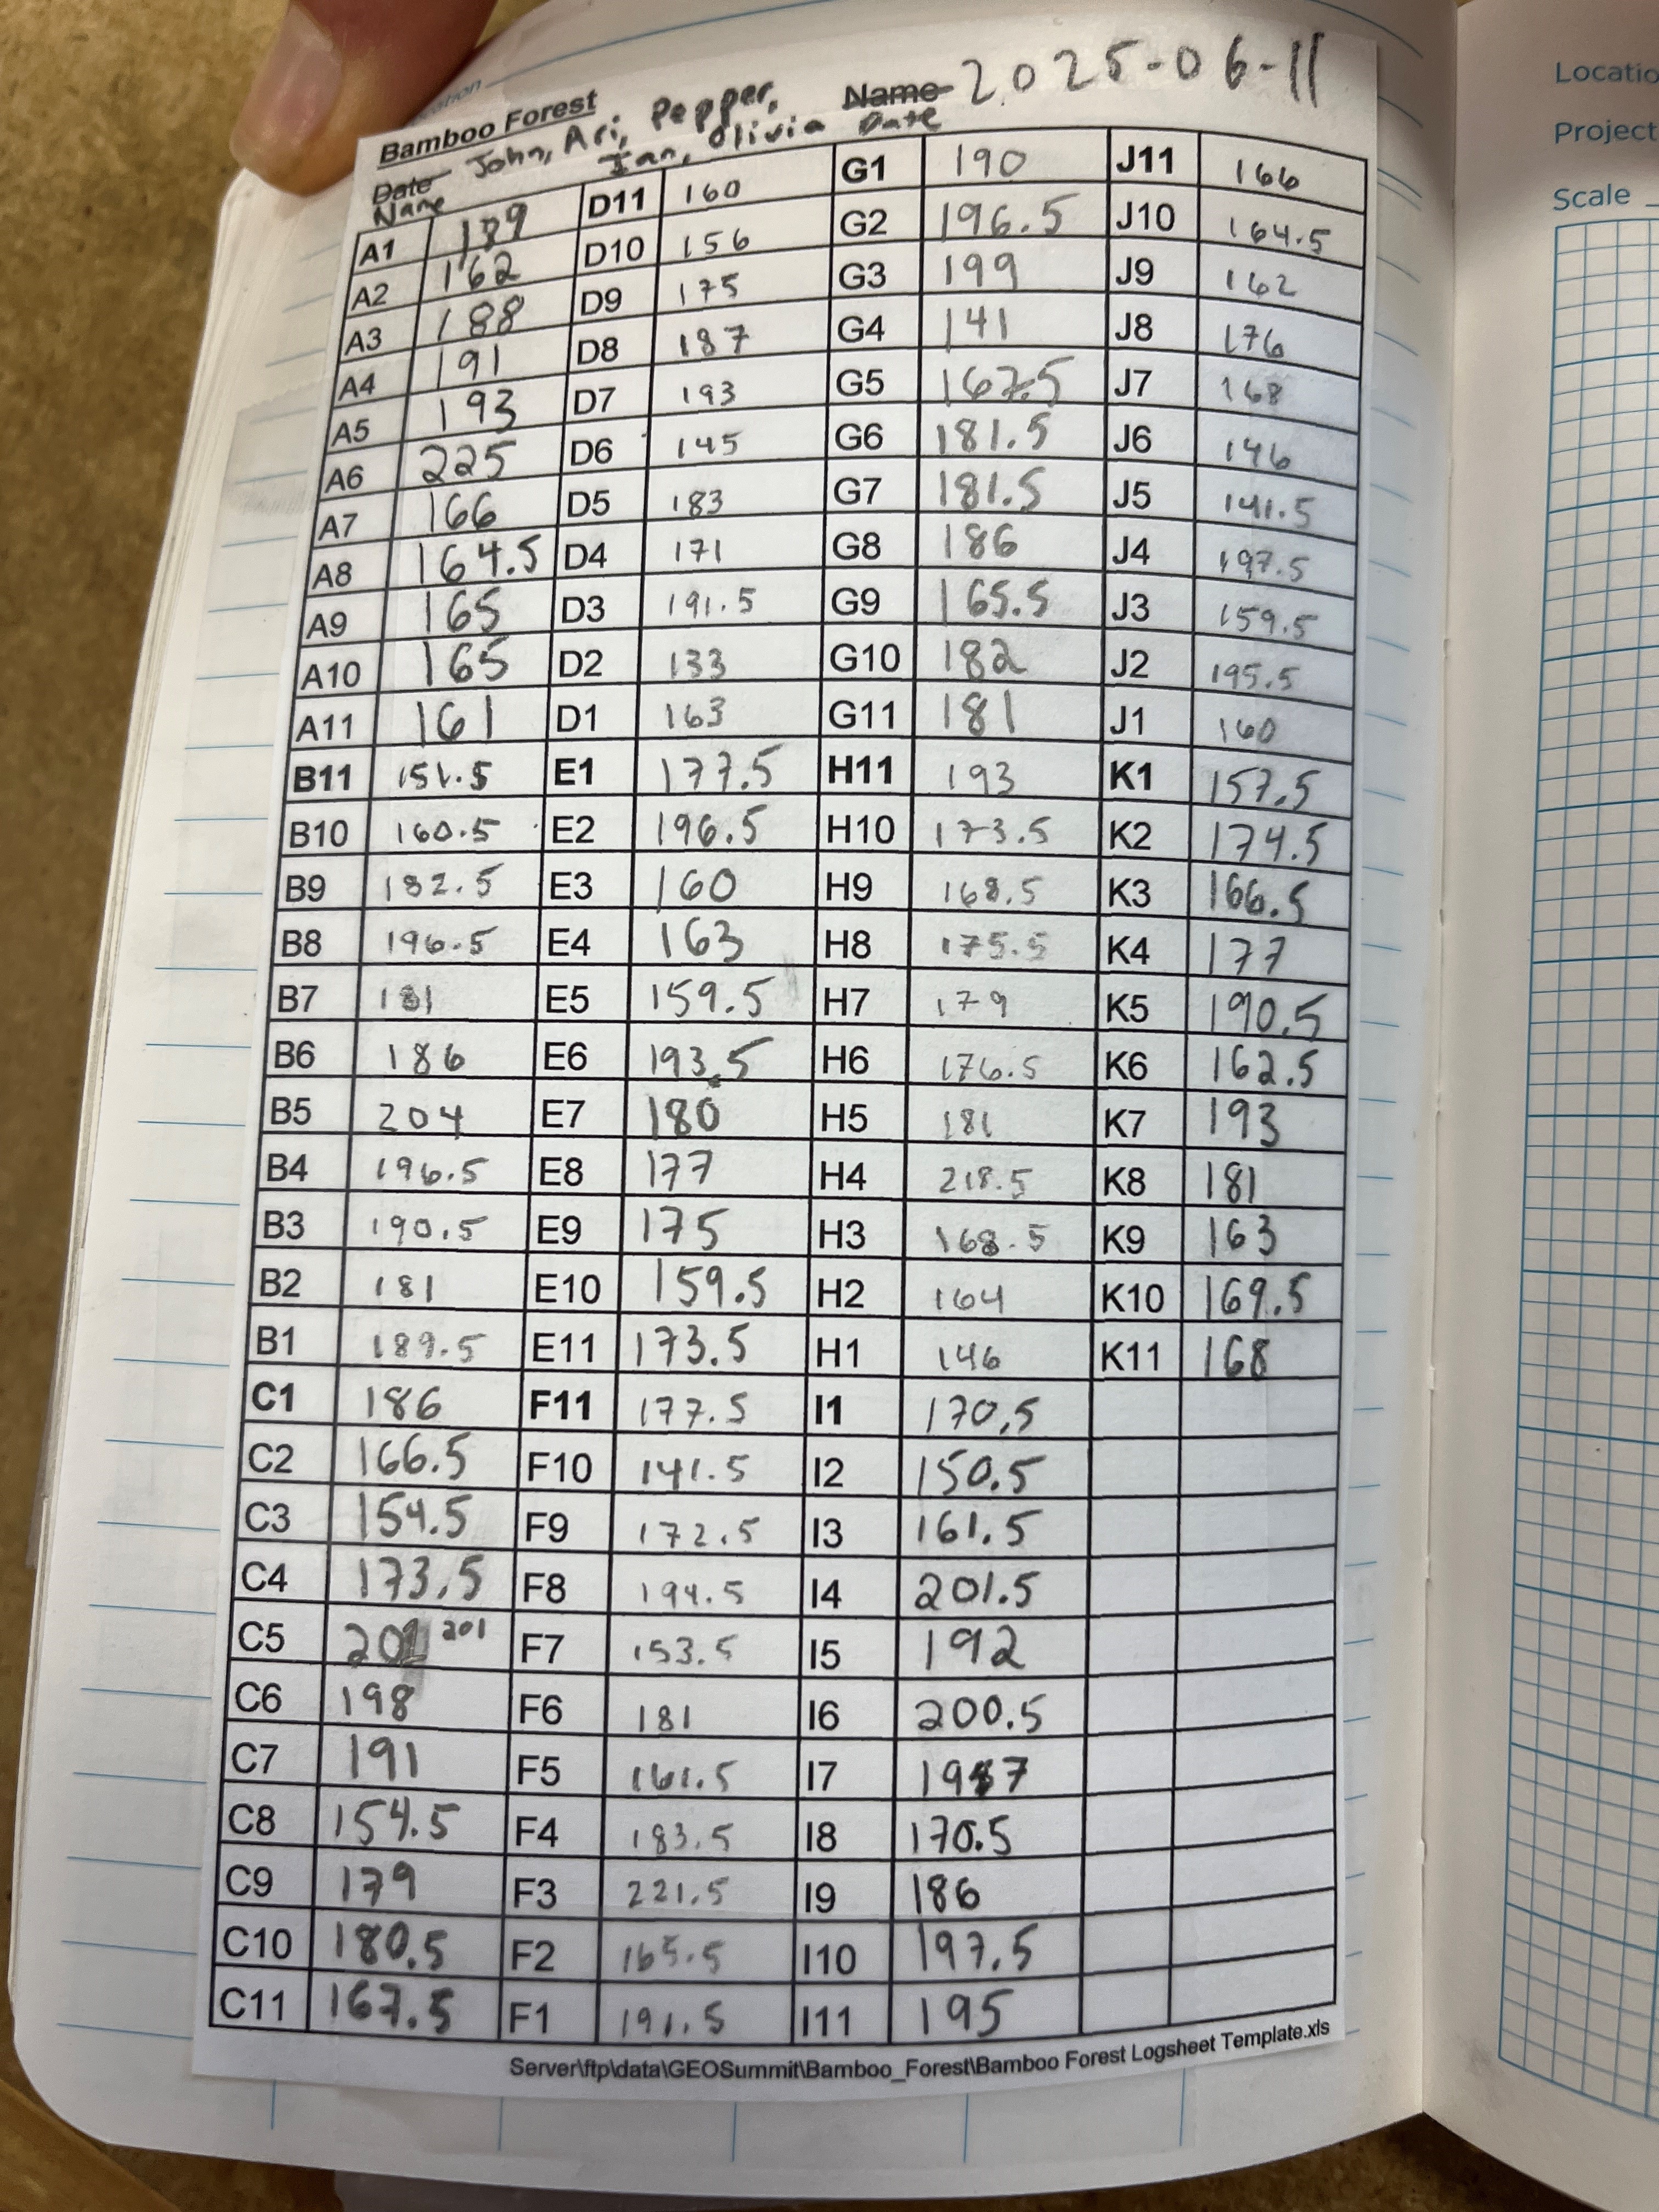 Bamboo Forest
Date Name John, Ari, Pepper, Ian, Olivia Name Date 2025-06-11
A1 189 D11 160 G1 190 J11 166
A2 162 D10 156 G2 196.5 J10 164.5
A3 188 D9 175 G3 199 J9 162
A4 191 D8 187 G4 141 J8 176
A5 193 D7 193 G5 167.5 J7 168
A6 225 D6 145 G6 181.5 J6 146
A7 166 D5 183 G7 181.5 J5 141.5
A8 164.5 D4 171 G8 186 J4 197.5
A9 165 D3 191.5 G9 165.5 J3 159.5
A10 165 D2 133 G10 182 J2 195.5
A11 161 D1 163 G11 181 J1 160
B11 151.5 E1 177.5 H11 193 K1 157.5
B10 160.5 E2 196.5 H10 173.5 K2 174.5
B9 182.5 E3 160 H9 168.5 K3 166.5
B8 196.5 E4 163 H8 175.5 K4 177
B7 181 E5 159.5 H7 179 K5 190.5
B6 186 E6 193.5 H6 176.5 K6 162.5
B5 204 E7 180 H5 181 K7 193
B4 196.5 E8 177 H4 218.5 K8 181
B3 190.5 E9 175 H3 168.5 K9 163
B2 181 E10 159.5 H2 164 K10 169.5
B1 189.5 E11 173.5 H1 146 K11 168
C1 186 F11 177.5 I1 170.5
C2 166.5 F10 141.5 I2 150.5
C3 154.5 F9 172.5 I3 161.5
C4 173.5 F8 194.5 I4 201.5
C5 201 201 F7 153.5 I5 192
C6 198 F6 181 I6 200.5
C7 191 F5 161.5 I7
C8 154.5 F4 183.5 I8 170.5
C9 179 F3 221.5 I9 186
C10 180.5 F2 165.5 I10 197.5
C11 167.5 F1 191.5 I11 195
Server\ftp\data\GEOSummit\Bamboo_Forest\Bamboo Forest Logsheet Template.xls
Project
Scale